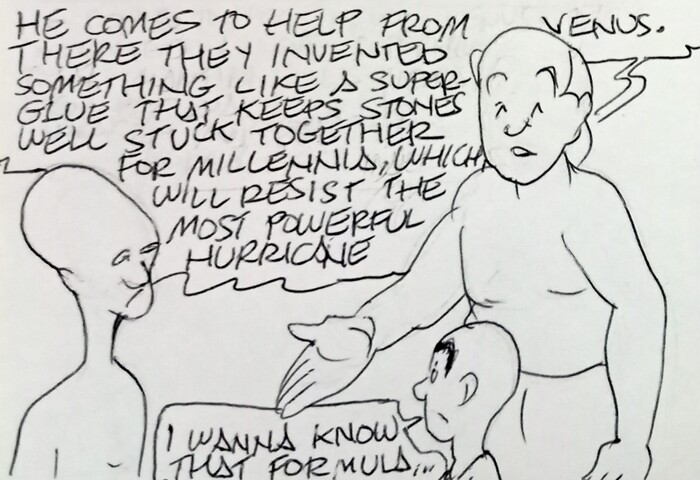 HE COMES TO HELP FROM VENUS.
THERE THEY INVENTED
SOMETHING LIKE A SUPER-
GLUE THAT KEEPS STONES
WELL STUCK TOGETHER
FOR MILLENNIA, WHICH
WILL RESIST THE
MOST POWERFUL
HURRICANE
I WANNA KNOW
THAT FORMULA...